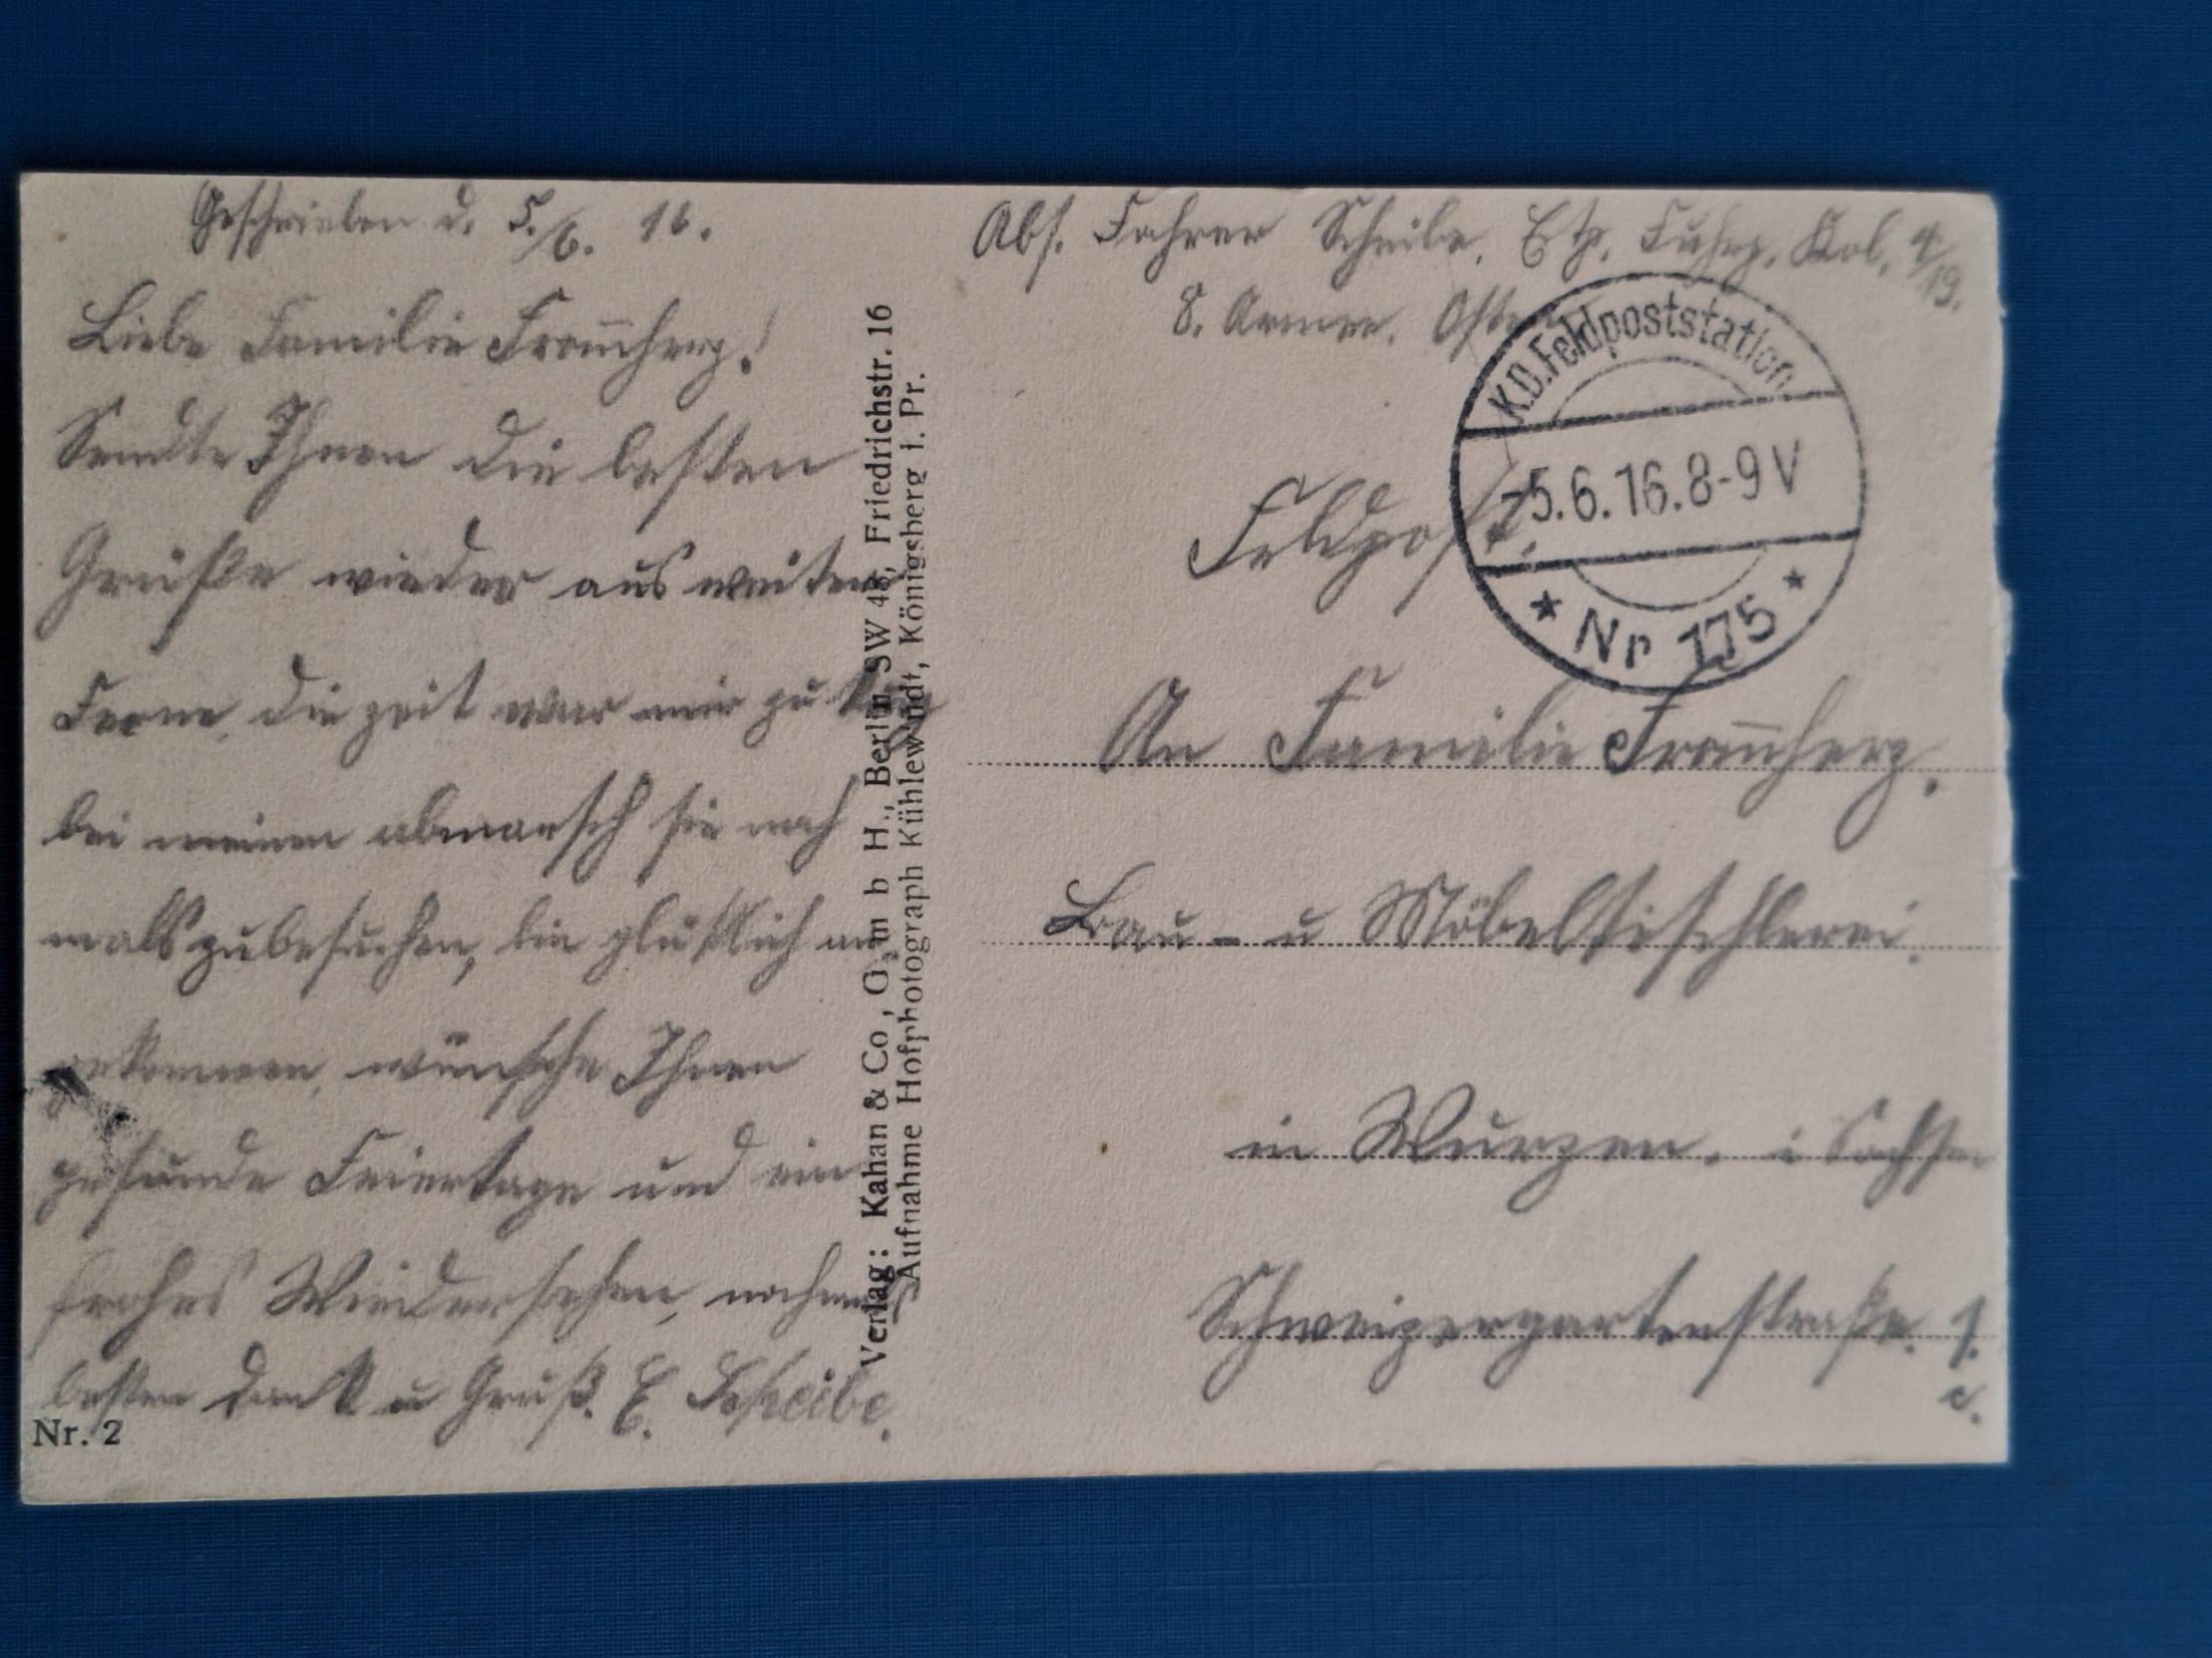 Geschrieben d. 5./6. 16.
Liebe Familie From̅herz!
Sendte Ihnen die besten
Grüße wieder aus weiten
Ferne, die zeit war mir zu kurz
bei meinen abmarsch sie noch
mals zubesuchen, bin glücklich an
gekommen, wünsche Ihnen
gesunde Feiertage und ein
frohes Wiedersehen, nochmals
besten Dank u Gruß. E. Scheibe.
Nr. 2
Verlag: Kahan & Co, G. m b H., Berlin SW 48, Friedrichstr. 16
Aufnahme Hofphotograph Kühlewindt, Königsberg i. Pr.
Abs. Fahrer Scheibe, Etp. Fuhrp. Kol. 4/19.
8. Armee. Osten
K.D. Feldpoststation
-5.6.16.8-9V
* Nr 175 *
Feldpost.
An Familie From̅herz.
Bau- u Möbeltischlerei.
in Wurzen. i Sachsen
Schweizergartenstraße. 1.